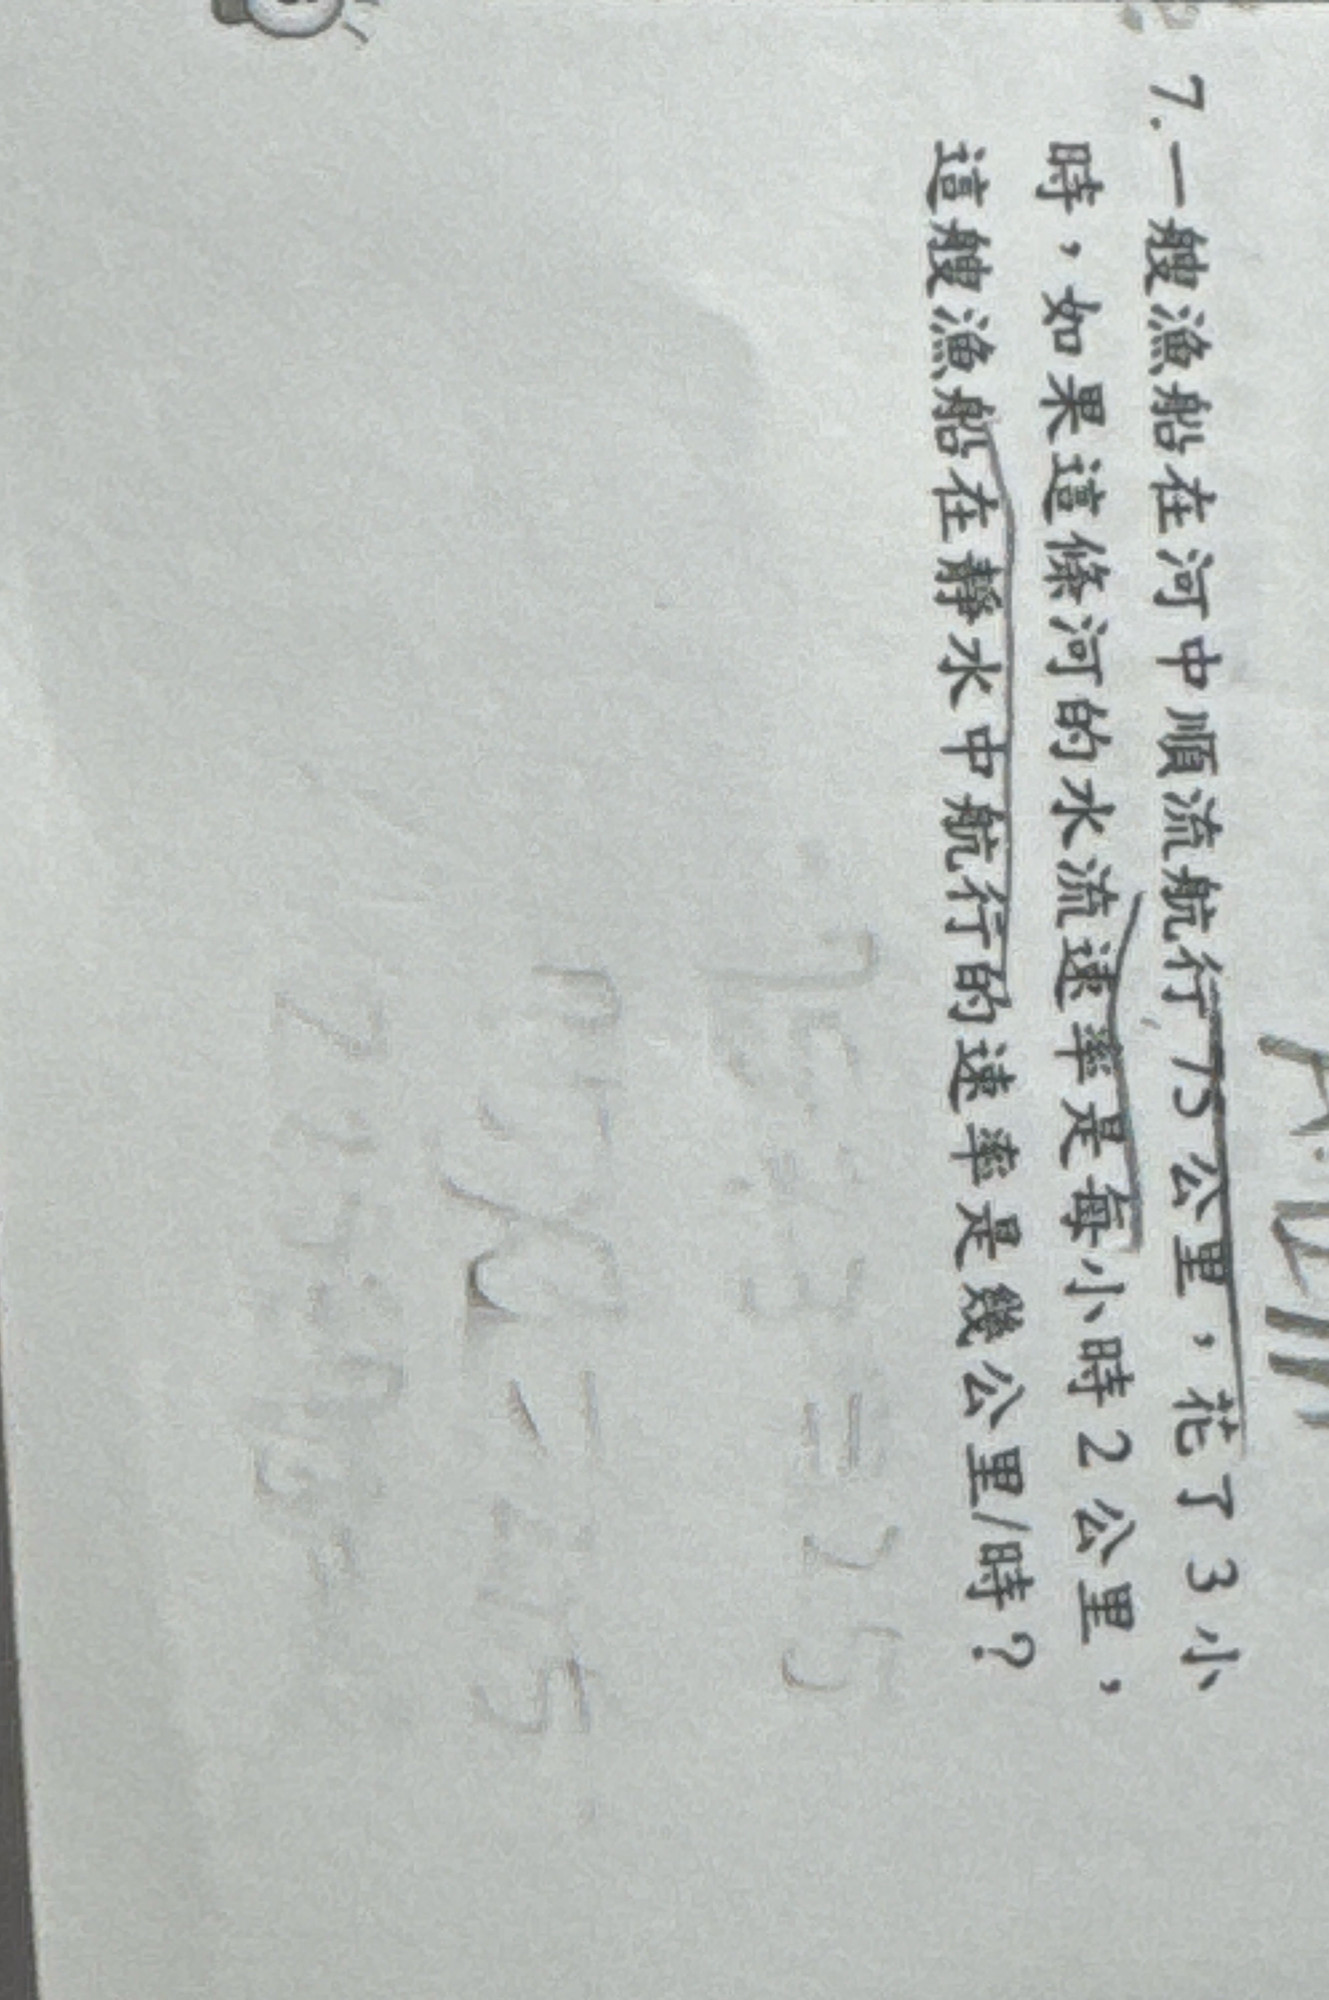 7.一艘漁船在河中順流航行75公里，花了3小
時，如果這條河的水流速率是每小時2公里，
這艘漁船在靜水中航行的速率是幾公里/時？
75÷3=25